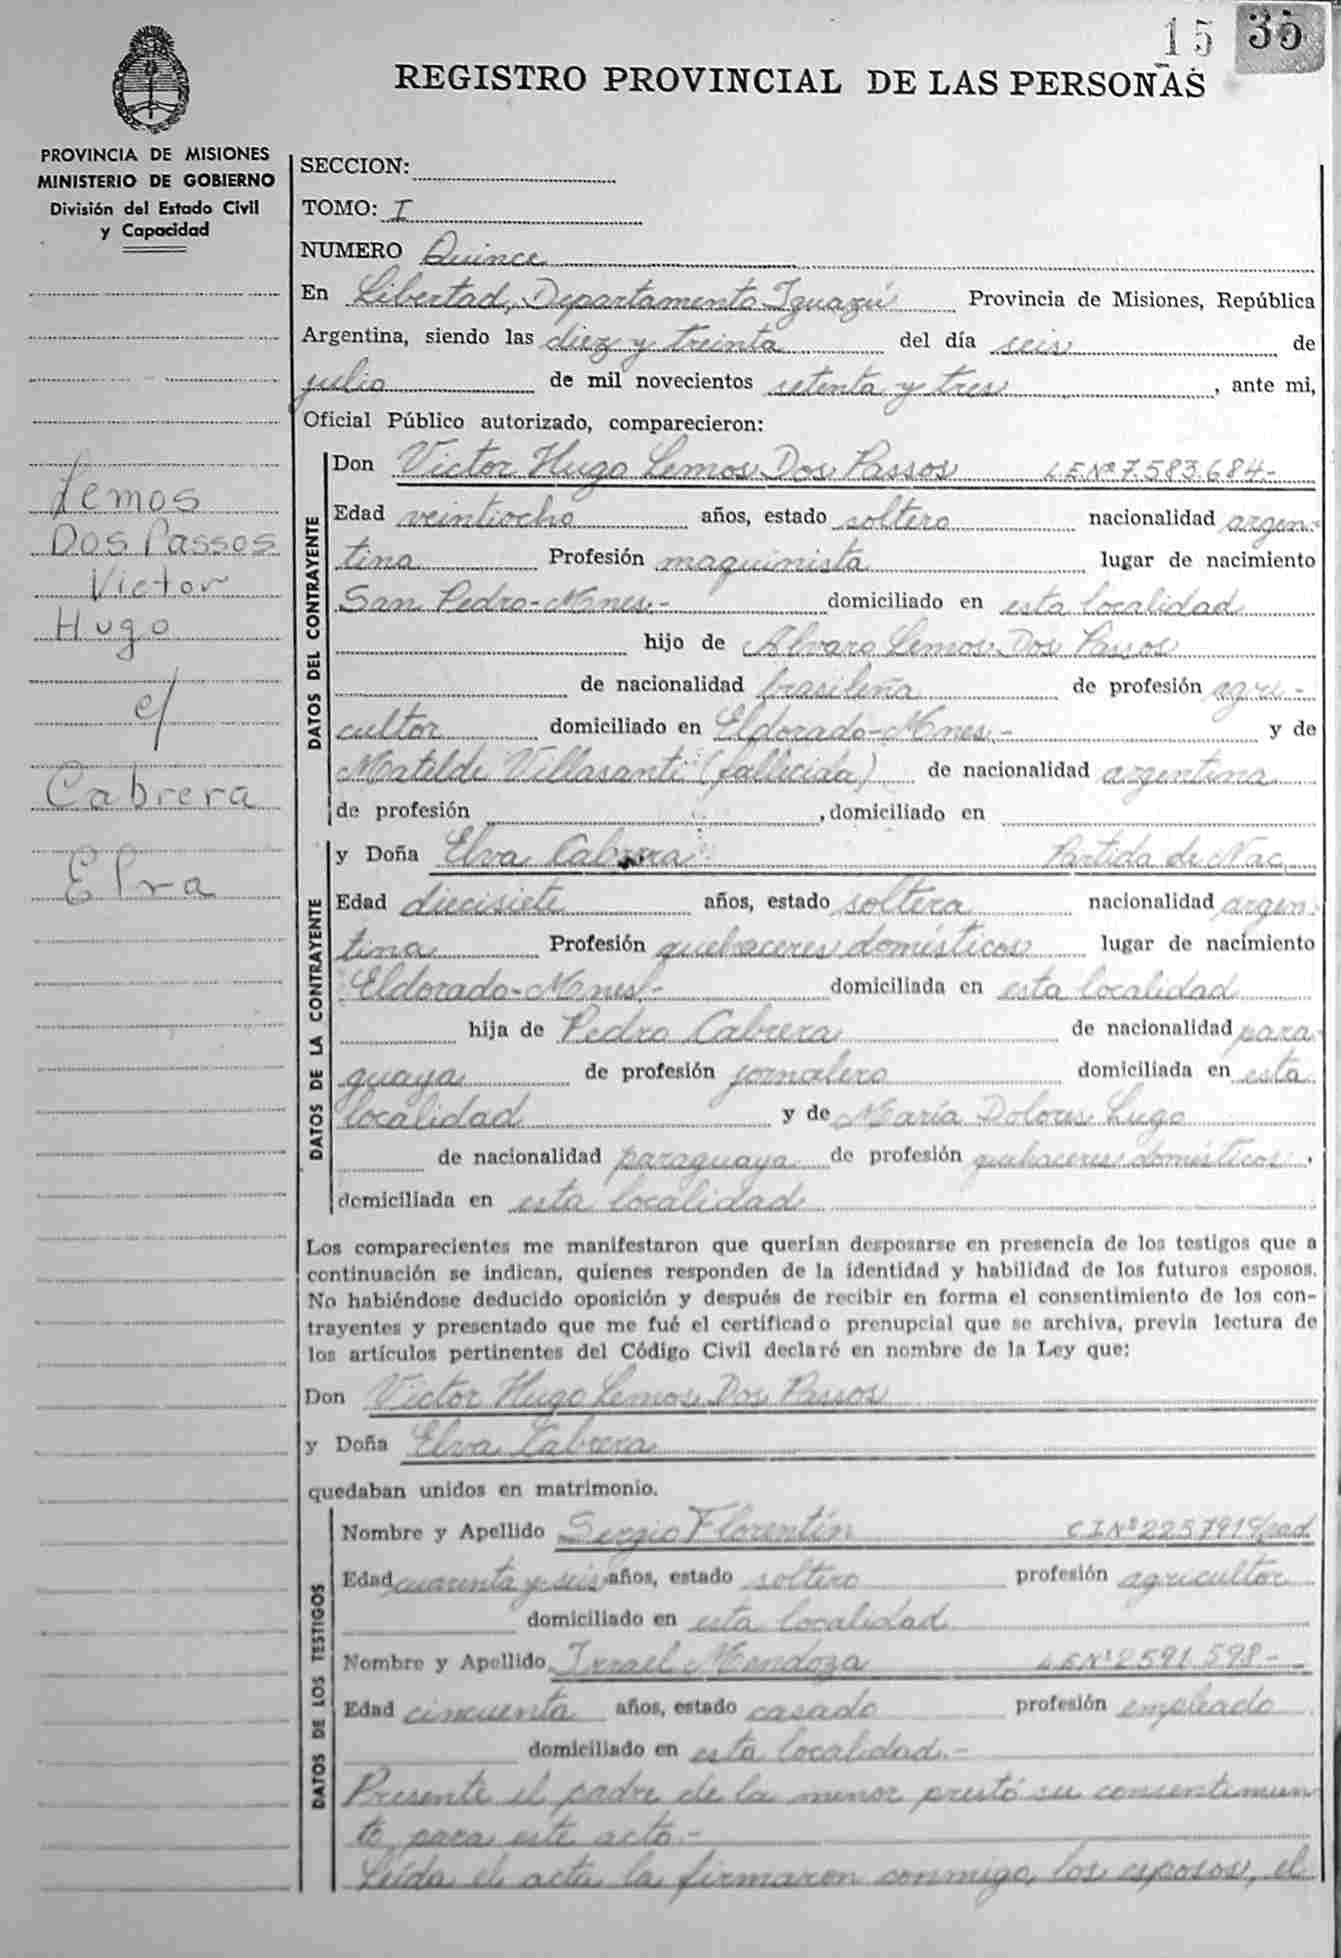 15 35
REGISTRO PROVINCIAL DE LAS PERSONAS
PROVINCIA DE MISIONES
MINISTERIO DE GOBIERNO
División del Estado Civil
y Capacidad
Lemos
Dos Passos
Victor
Hugo
c/
Cabrera
Elva
SECCION:
TOMO: I
NUMERO Quince
En Libertad, Departamento Iguazú Provincia de Misiones, República
Argentina, siendo las diez y treinta del día seis de
julio de mil novecientos setenta y tres, ante mi,
Oficial Público autorizado, comparecieron:
DATOS DEL CONTRAYENTE
Don Victor Hugo Lemos Dos Passos L.E.Nº 7.583.684.-
Edad veintiocho años, estado soltero nacionalidad argen-
tina Profesión maquinista lugar de nacimiento
San Pedro-Mnes.- domiciliado en esta localidad
hijo de Alvaro Lemos Dos Passos
de nacionalidad brasileña de profesión agri-
cultor domiciliado en Eldorado-Mnes.- y de
Matilde Villasanti (fallecida) de nacionalidad argentina
de profesión , domiciliado en
DATOS DE LA CONTRAYENTE
y Doña Elva Cabrera Partida de Nac.
Edad diecisiete años, estado soltera nacionalidad argen-
tina Profesión quehaceres domésticos lugar de nacimiento
Eldorado-Mnes.- domiciliada en esta localidad
hija de Pedro Cabrera de nacionalidad para-
guaya de profesión jornalero domiciliada en esta
localidad y de María Dolores Lugo
de nacionalidad paraguaya de profesión quehaceres domésticos,
domiciliada en esta localidad
Los comparecientes me manifestaron que querían desposarse en presencia de los testigos que a
continuación se indican, quienes responden de la identidad y habilidad de los futuros esposos.
No habiéndose deducido oposición y después de recibir en forma el consentimiento de los con-
trayentes y presentado que me fué el certificado prenupcial que se archiva, previa lectura de
los artículos pertinentes del Código Civil declaré en nombre de la Ley que:
Don Victor Hugo Lemos Dos Passos
y Doña Elva Cabrera
quedaban unidos en matrimonio.
DATOS DE LOS TESTIGOS
Nombre y Apellido Sergio Florentín C.I.Nº
Edad cuarenta y seis años, estado soltero profesión agricultor
domiciliado en esta localidad
Nombre y Apellido Israel Mendoza L.E.Nº 2591.598.-
Edad cincuenta años, estado casado profesión empleado
domiciliado en esta localidad.-
Presente el padre de la menor prestó su consentimien
to para este acto.-
Leída el acta la firmaron conmigo, los esposos, el